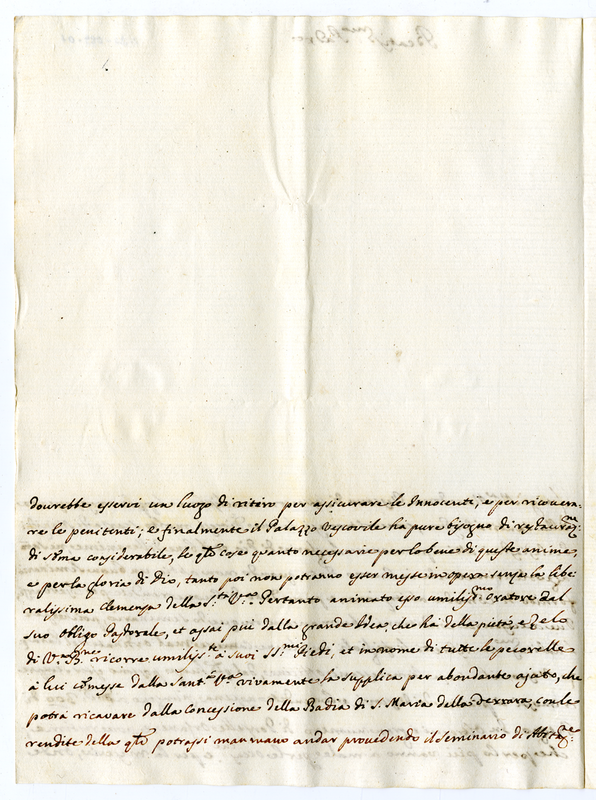 dourebbe esservi un luogo di ritiro per assicurare le Innocenti, e per ricovera-
re le penitenti; e finalmente il Palazzo Vescovile ha pure bisogno di restauraz.ne
di sõma considerabile, le q̃li cose quanto necessarie per lo bene di queste anime,
e per la gloria di Dio, tanto poi non potranno esser messe in opera senza la libe-
ralissima clemenza della S.tà V.ra Pertanto animato esso umiliss.mo oratore dal
suo obligo Pastorale, et assai più dalla grande Idea, che ha della pietà, e Zelo
di V.ra B.ne ricorre umiliss.te a' suoi SS.mi Piedi, et in nome di tutte le pecorelle
à lui cõmesse dalla Sant.tà V.ra vivamente la supplica per abbondante ajuto, che
potrà ricavare dalla Concessione della Badia di S. Maria della con le
rendite della q̃le potrassi man mano andar provedendo il Seminario di